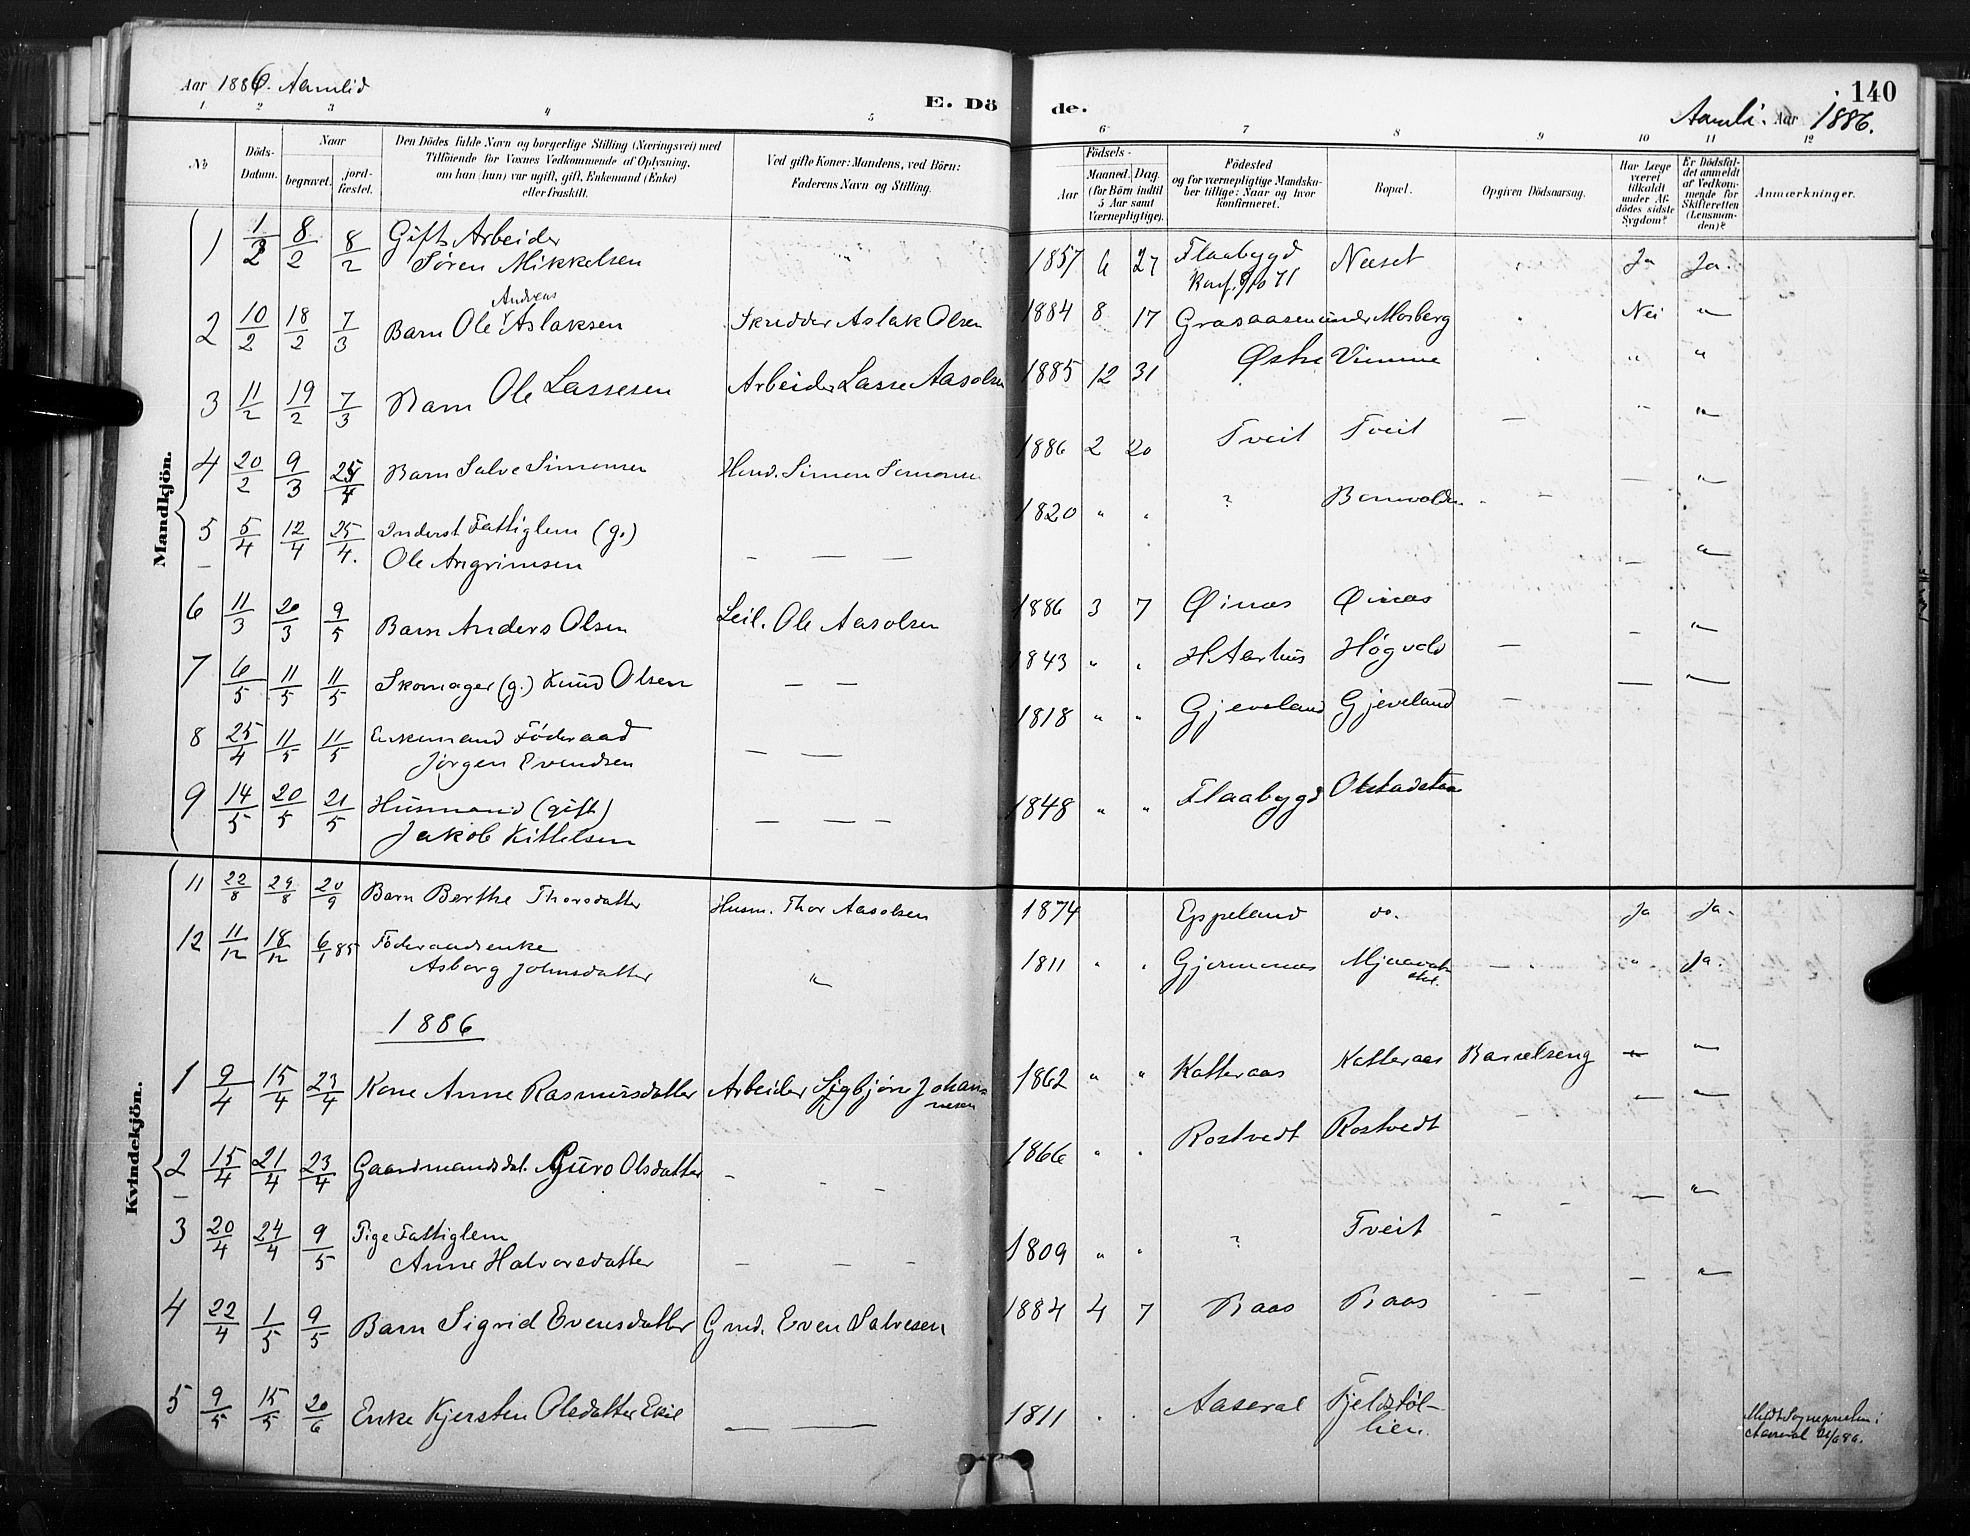 Aar 1886. Aamlid
E. Dö de.
140
Aamli. Aar 1886.
1 2 3 4 5 6 7 8 9 10 11 12
No
Döds-Datum.
Naar
begravet.
jord-fæstet.
Den Dödes fulde Navn og borgerlige Stilling (Næringsvei) med
Tilföiende for Voxnes Vedkommende af Oplysning,
om han (hun) var ugift, gift, Enkemand (Enke)
eller fraskilt.
Ved gifte Koner: Mandens, ved Börn:
Faderens Navn og Stilling.
Födsels-
Aar
Maaned. Dag.
(for Börn indtil
5 Aar samt
Værnepligtige).
Födested
og for værnepligtige Mandska-
ber tillige: Naar og hvor
konfirmeret.
Bopæl.
Opgiven Dödsaarsag.
Har Læge
været
tilkaldt
under Af-
dödes sidste
Sygdom?
Er Dödsfal-
det anmeldt
af Vedkom-
mende for
Skifteretten
(Lensman-
den)?
Anmærkninger.
Mandkjön.
1 1/2 8/2 8/2 Gift Arbeider
Søren Mikkelsen 1857 6 27 Flaabygd Næset Ja Ja.
Konf. 8/10 71
2 10/2 18/2 7/3 Barn Ole Andreas Aslaksen Skrædder Aslak Olsen 1884 8 17 Graaaasen under Mosberg Nei "
3 11/2 19/2 7/3 Barn Ole Lassesen Arbeider Lasse Aasolsen 1885 12 31 Østre Vimme " "
4 20/2 9/3 25/4 Barn Salve Simonsen Husd. Simon Simonsen 1886 2 20 Tveit Tveit — " "
5 5/4 12/4 25/4. Inderst Fattiglem (g.)
Ole Arngrimsen — — — 1820 " " ? — — "
6 11/3 20/3 9/5 Barn Anders Olsen Leil. Ole Aasolsen 1886 3 7 Øinæs Øinæs — "
7 6/5 11/5 11/5 Skomager (g.) Knud Olsen — — 1843 " " Høgvold — — "
8 25/4 11/5 11/5 Enkemand Föderaad
Jørgen Evendsen — — 1818 " " Gjeveland Gjeveland — — "
9 14/5 20/5 21/5 Husmand (gift)
Jakob Kittelsen — — — 1848 " " Flaabygd
Kvindekjön.
11 22/8 29/8 20/9 Barn Berthe Thorsdatter Husm. Thor Aasolsen 1874 Eppeland do. Ja Ja.
12 11/12 18/12 6/1 85 Föderaadsenke
Asborg Johnsdatter " 1811 " " — " Ja.
1886
1 9/4 15/4 23/4 Kone Anne Rasmusdatter Arbeider Sigbjørn Johan-
nesen 1862 " " Katteraas Katteraas Barselseng — "
2 15/4 21/4 23/4 Gaardmandsdat. Guro Olsdatter - - - 1866 " " Rostvedt Rostvedt — — "
3 20/4 24/4 9/5 Pige Fattiglem
Anne Halvorsdatter — — — 1809 " " ? Tveit — — — "
4 22/4 1/5 9/5 Barn Sigrid Evensdatter Gmd. Even Salvesen 1884 4 7 Raas Raas — — — "
5 9/5 15/5 20/6 Enke Kjersten Olsdatter — — 1811 " " Aaseral Fjeldstøl-
lien.
Meldt Sognepresten i
Aaseral